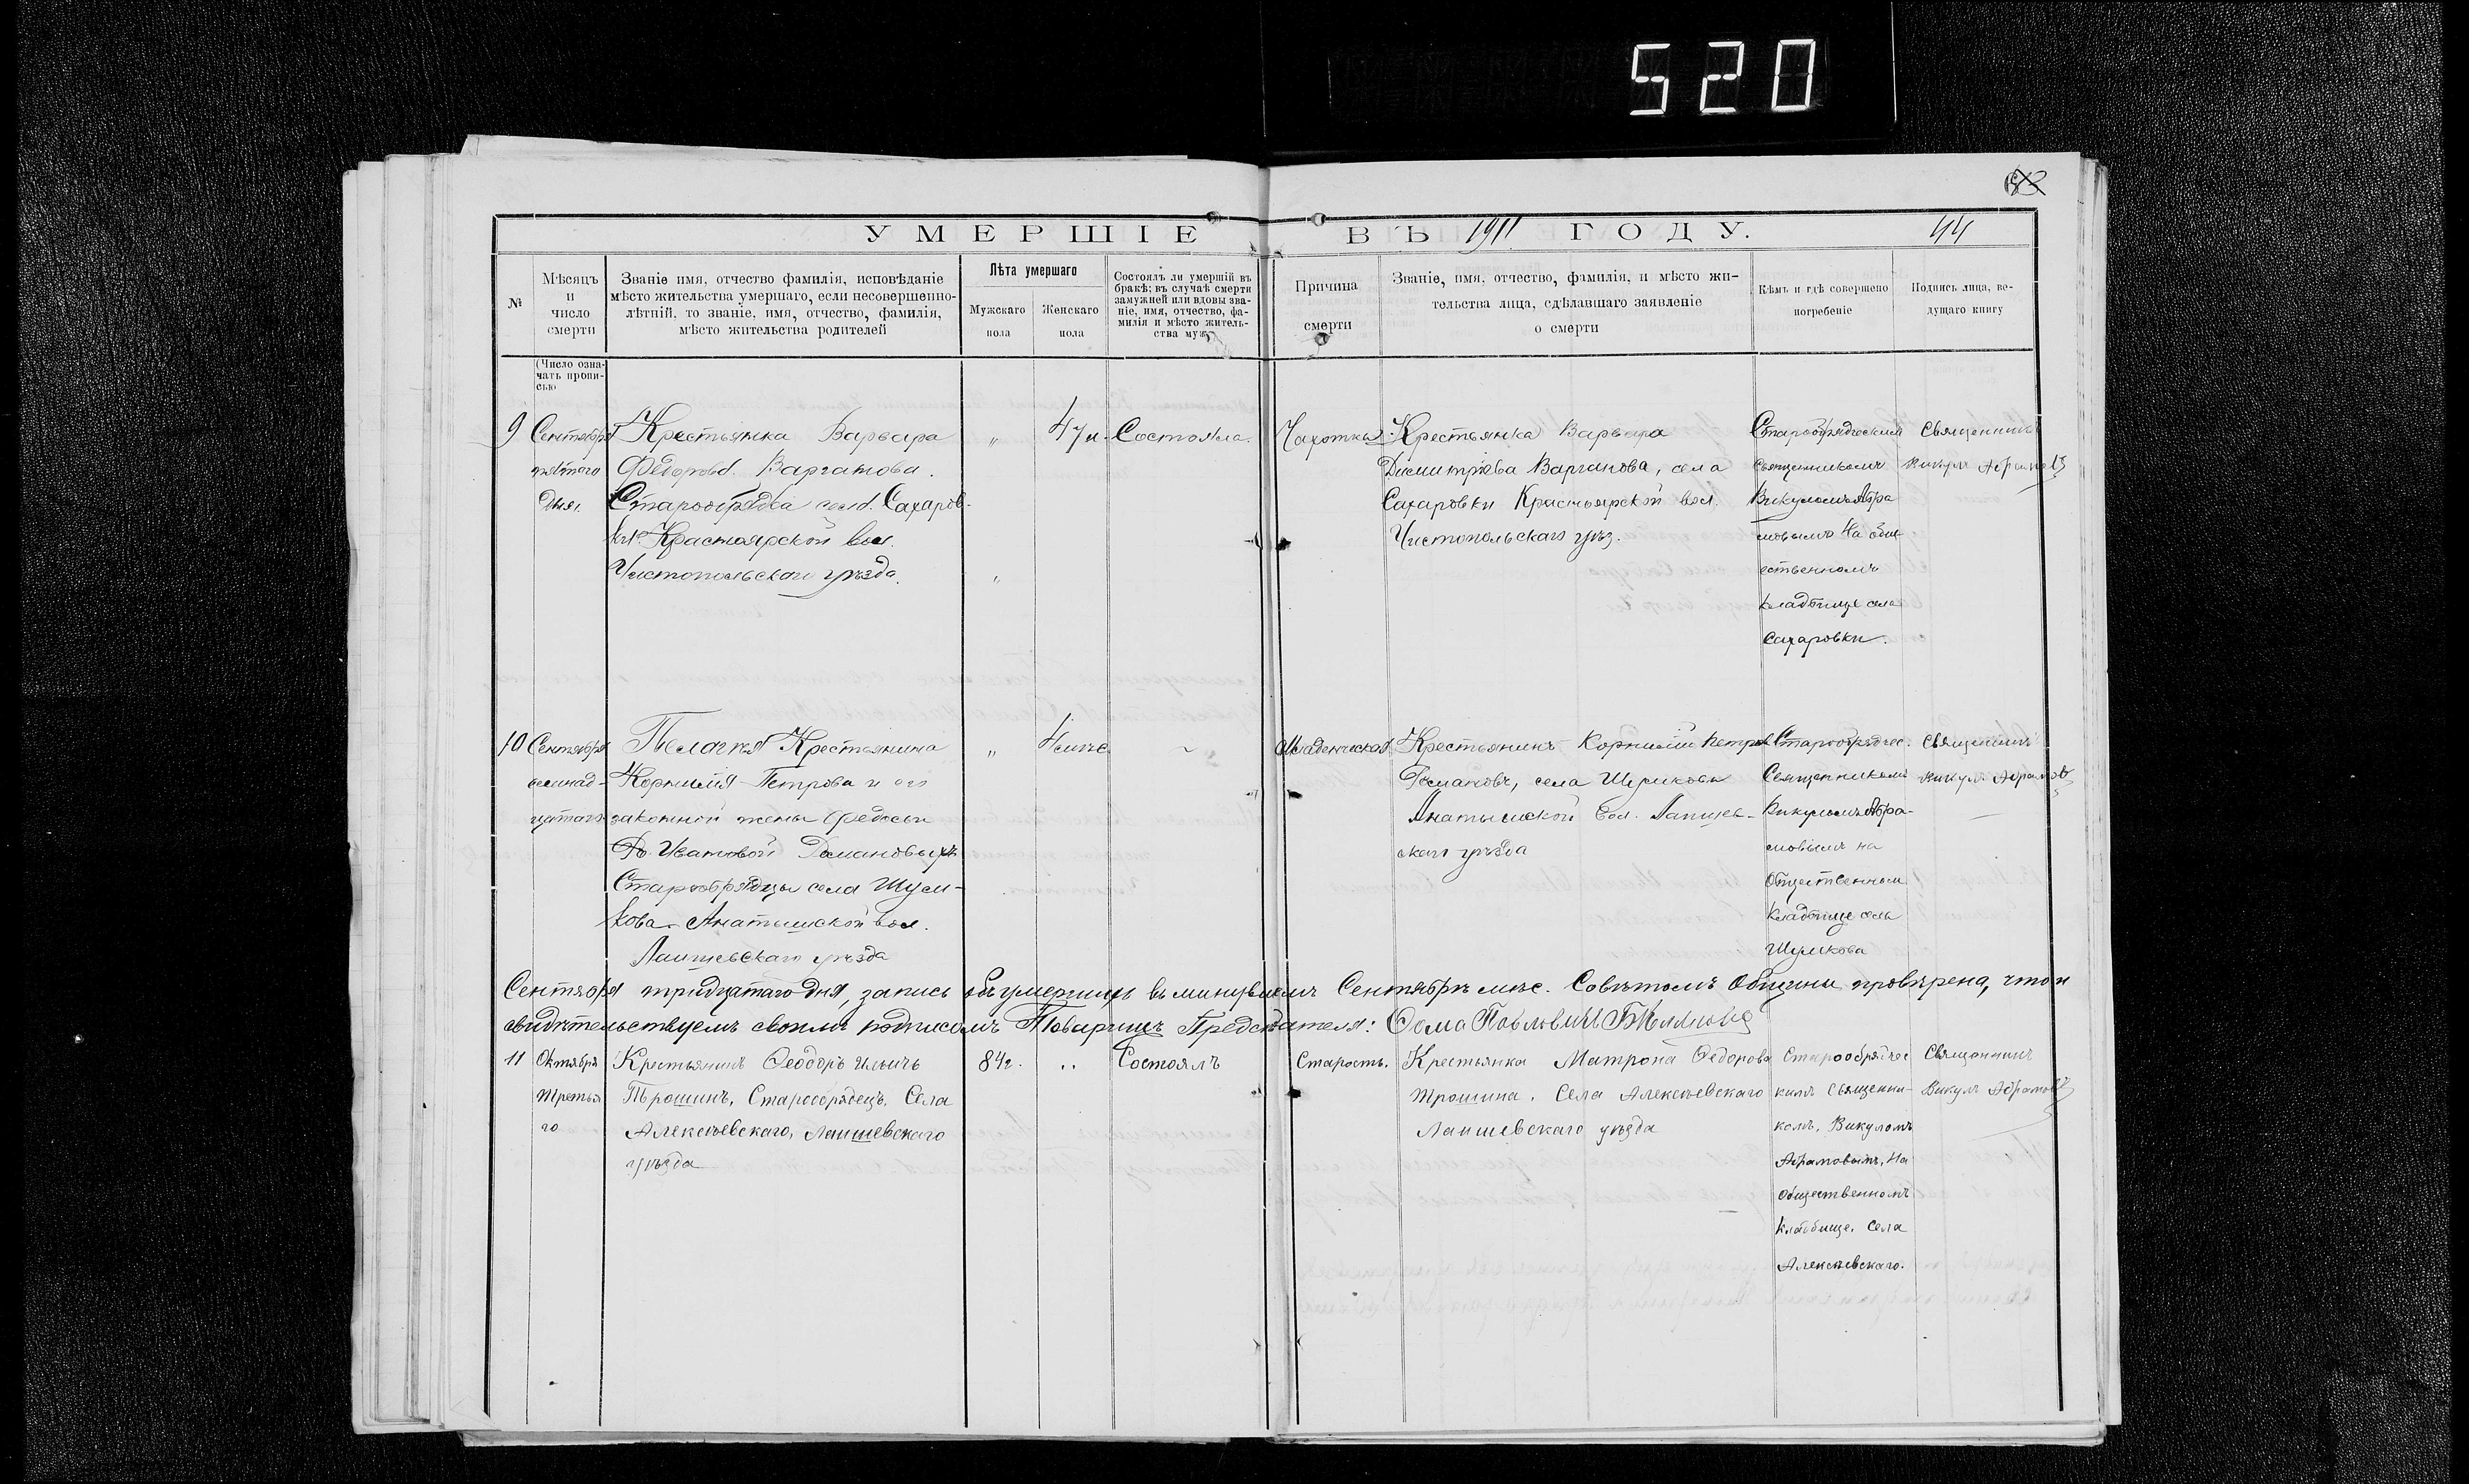 520
УМЕРШІЕ ВЪ 1911 ГОДУ. 44
№
Мѣсяцъ и число смерти
Званіе имя, отчество фамилія, исповѣданіе
мѣсто жительства умершаго, если несовершенно-
лѣтній, то званіе, имя, отчество, фамилія,
мѣсто жительства родителей
Лѣта умершаго
Мужскаго пола
Женскаго пола
Состоялъ ли умершій въ
бракѣ; въ случаѣ смерти
замужней или вдовы зва-
ніе, имя, отчество, фа-
милія и мѣсто житель-
ства мужа
Причина смерти
Званіе, имя, отчество, фамилія, и мѣсто жи-
тельства лица, сдѣлавшаго заявленіе
о смерти
Кѣмъ и гдѣ совершено
погребеніе
Подпись лица, ве-
дущаго книгу
(Число озна-
чать пропи-
сью
9
Сентября
пятаго
дня.
Крестьянка Варвара
Федорова Варганова.
Старообрядка села Сахаров-
ки Красноярской вол.
Чистопольскаго уѣзда.
"
"
Состояла.
Чахотка
Крестьянка Варвара
Димитріева Варганова, села
Сахаровки Красноярской вол.
Чистопольскаго уѣз.
Старообрядческимъ
священникомъ
Викуломъ Абра
мовымъ На общ-
ественномъ
кладбище села
Сахаровки.
Священникъ
Викулъ Абрамовъ
10
Сентября
семнад-
цатаго
Пелагия Крестьянина
Корнилия Петрова и его
законной жены Федосьи
Ивановой Романовыхъ
Старообрядцы села Шум-
кова Анатышской вол.
Лаишевскаго уѣзда
"
4 мѣс.
Младенческая
Крестьянинъ Корнилій Петров
Романовъ, села Шумкова
Анатышской вол. Лаишев-
скаго уѣзда
Старообрядчес.
Священникомъ
Викуломъ Абра-
мовымъ на
Общественном
Кладбище села
Шумкова
Священникъ
Викулъ Абрамовъ
Сентября тридцатаго дня, запись объ умершихъ въ минувшемъ Сентябрѣ мѣс. Совѣтомъ Общины провѣрена, что и
свидѣтельствуемъ своимъ подписомъ Товарищъ Предсѣдателя: Фома Павловичъ
11
Октября
Третья
го
Крестьянинъ Феодоръ Ильичъ
Трошинъ, Старообрядецъ, Села
Алексѣевскаго, Лаишевскаго
уѣзда
84г.
"
Состоялъ
Старость.
Крестьянка Матрона Федорова
Трошина. Села Алексѣевскаго
Лаишевскаго уѣзда
Старообрядчес
кимъ Священни-
комъ, Викуломъ
Абрамовымъ, На
Общественномъ
кладбище. Села
Алексѣевскаго.
Священникъ
Викулъ Абрамовъ